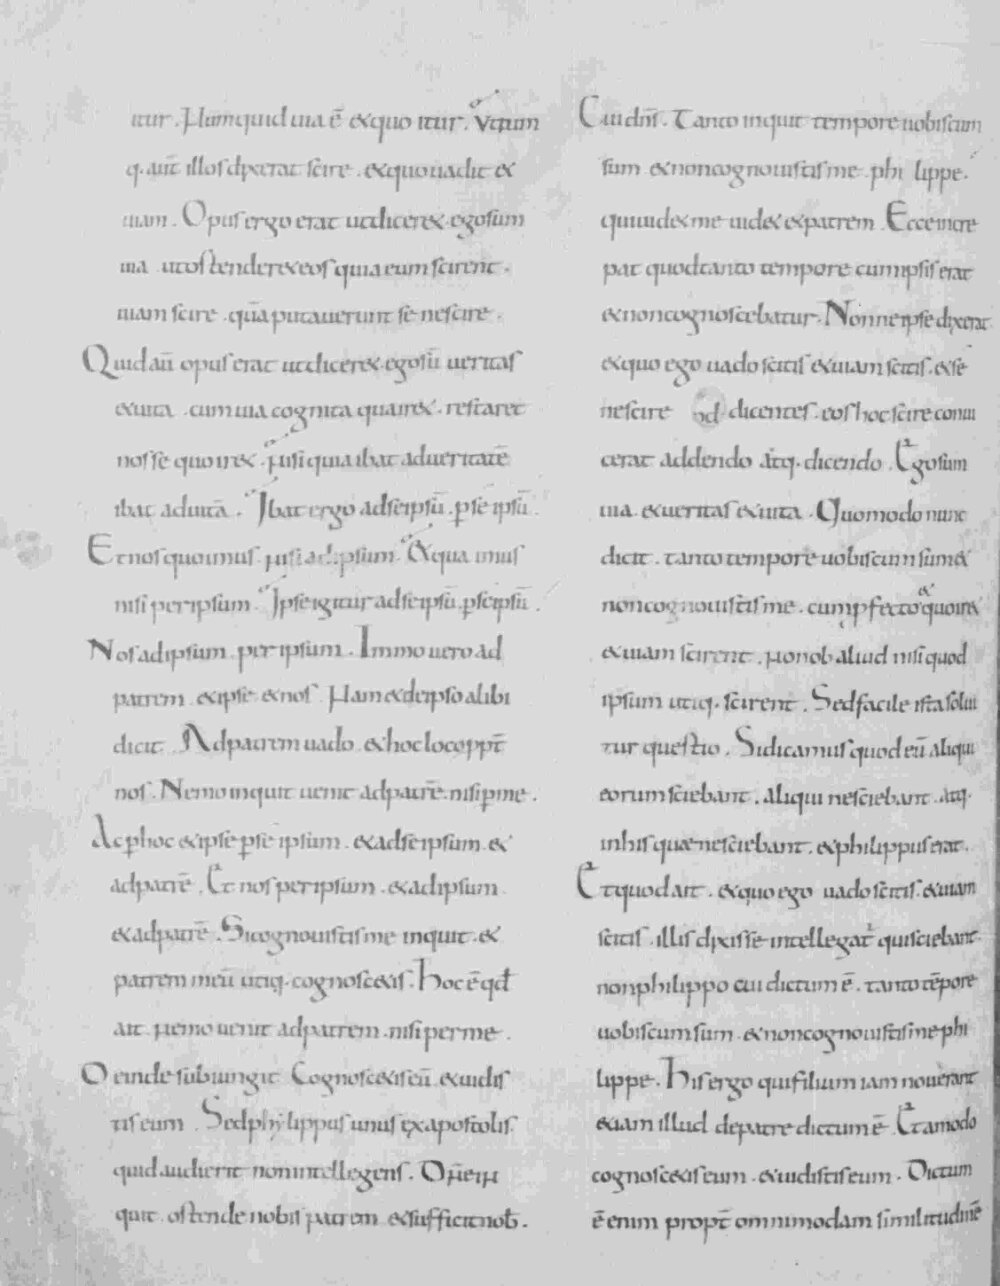 itur. Numquid uia ē & quo itur. Vtrum
q. aūt illos dixerat scire. & quo uadit &
uiam. Opus ergo erat ut dicer& ego sum
uia ut ostender& eos quia eum scirent.
uiam scire. quā putauerunt se nescire.
Quid aū opus erat ut dicer& ego sū ueritas
& uita. cum uia cognita qua ir&. restaret
nosse quo ir&. Nisi quia ibat ad ueritatē
ibat ad uitā. Ibat ergo ad se ipsū. p se ipsū.
Et nos quo imus nisi ad ipsum. & qua imus
nisi per ipsum. Ipse igitur ad se ipsū. p se ipsū.
Nos ad ipsum per ipsum. Immo uero ad
patrem & ipse & nos. Nam & de ipso alibi
dicit. Ad patrem uado. & hoc loco ppt̄
nos. Nemo inquit uenit ad patrē. nisi p me.
Ac p hoc & ipse p se ipsum. & ad se ipsum. &
ad patrē. Et nos per ipsum. & ad ipsum
& ad patrē. Si cognouistis me inquit. &
patrem meū utiq. cognosc&is. Hoc ē qđ
ait. Nemo uenit ad patrem. nisi per me.
Deinde subiungit. Cognosc&is eū. & uidis
tis eum. Sed phylippus unus ex apostolis.
quid audierit non intellegens. Dn̄e in
quit. ostende nobis patrem & sufficit nob̄.
Cui dn̄s. Tanto inquit tempore uobiscum
sum & non cognouistis me. philippe.
qui uid& me uid& & patrem. Ecce incre
pat quod tanto tempore cum ipsis erat
& non cognoscebatur. Nonne ipse dixerat
& quo ego uado scitis & uiam scitis. & se
nescire dicentes. eos hoc scire conui
cerat addendo atq. dicendo. Ego sum
uia. & ueritas & uita. Quomodo nunc
dicit. tanto tempore uobiscum sum &
non cognouistis me. cum pfecto & quo ir&
& uiam scirent. Non ob aliud nisi quod
ipsum utiq. scirent. Sed facile ista solui
tur questio. Si dicamus quod eū aliqui
eorum sciebant. aliqui nesciebant. atq.
in his quae nesciebant. & philippus erat.
Et quod ait. & quo ego uado scitis. & uiam
scitis. illis dixisse intellegat̄ qui sciebant.
non philippo cui dictum ē. tanto tēpore
uobiscum sum. & non cognouistis me phi
lippe. His ergo qui filium iam nouerant
etiam illud de patre dictum ē. Et amodo
cognosc&is eum. & uidistis eum. Dictum
ē enim propt̄ omnimodam similitudinē